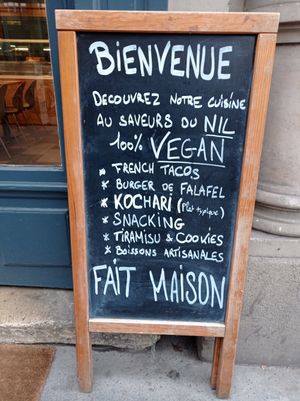 BIENVENUE
DECOUVREZ NOTRE CUISINE
AU SAVEURS DU NIL
100% VEGAN
* FRENCH TACOS
* BURGER DE FALAFEL
* KOCHARI (Plat typique)
* SNACKING
* TIRAMISU & COOKIES
* BOISSONS ARTISANALES
FAIT MAISON